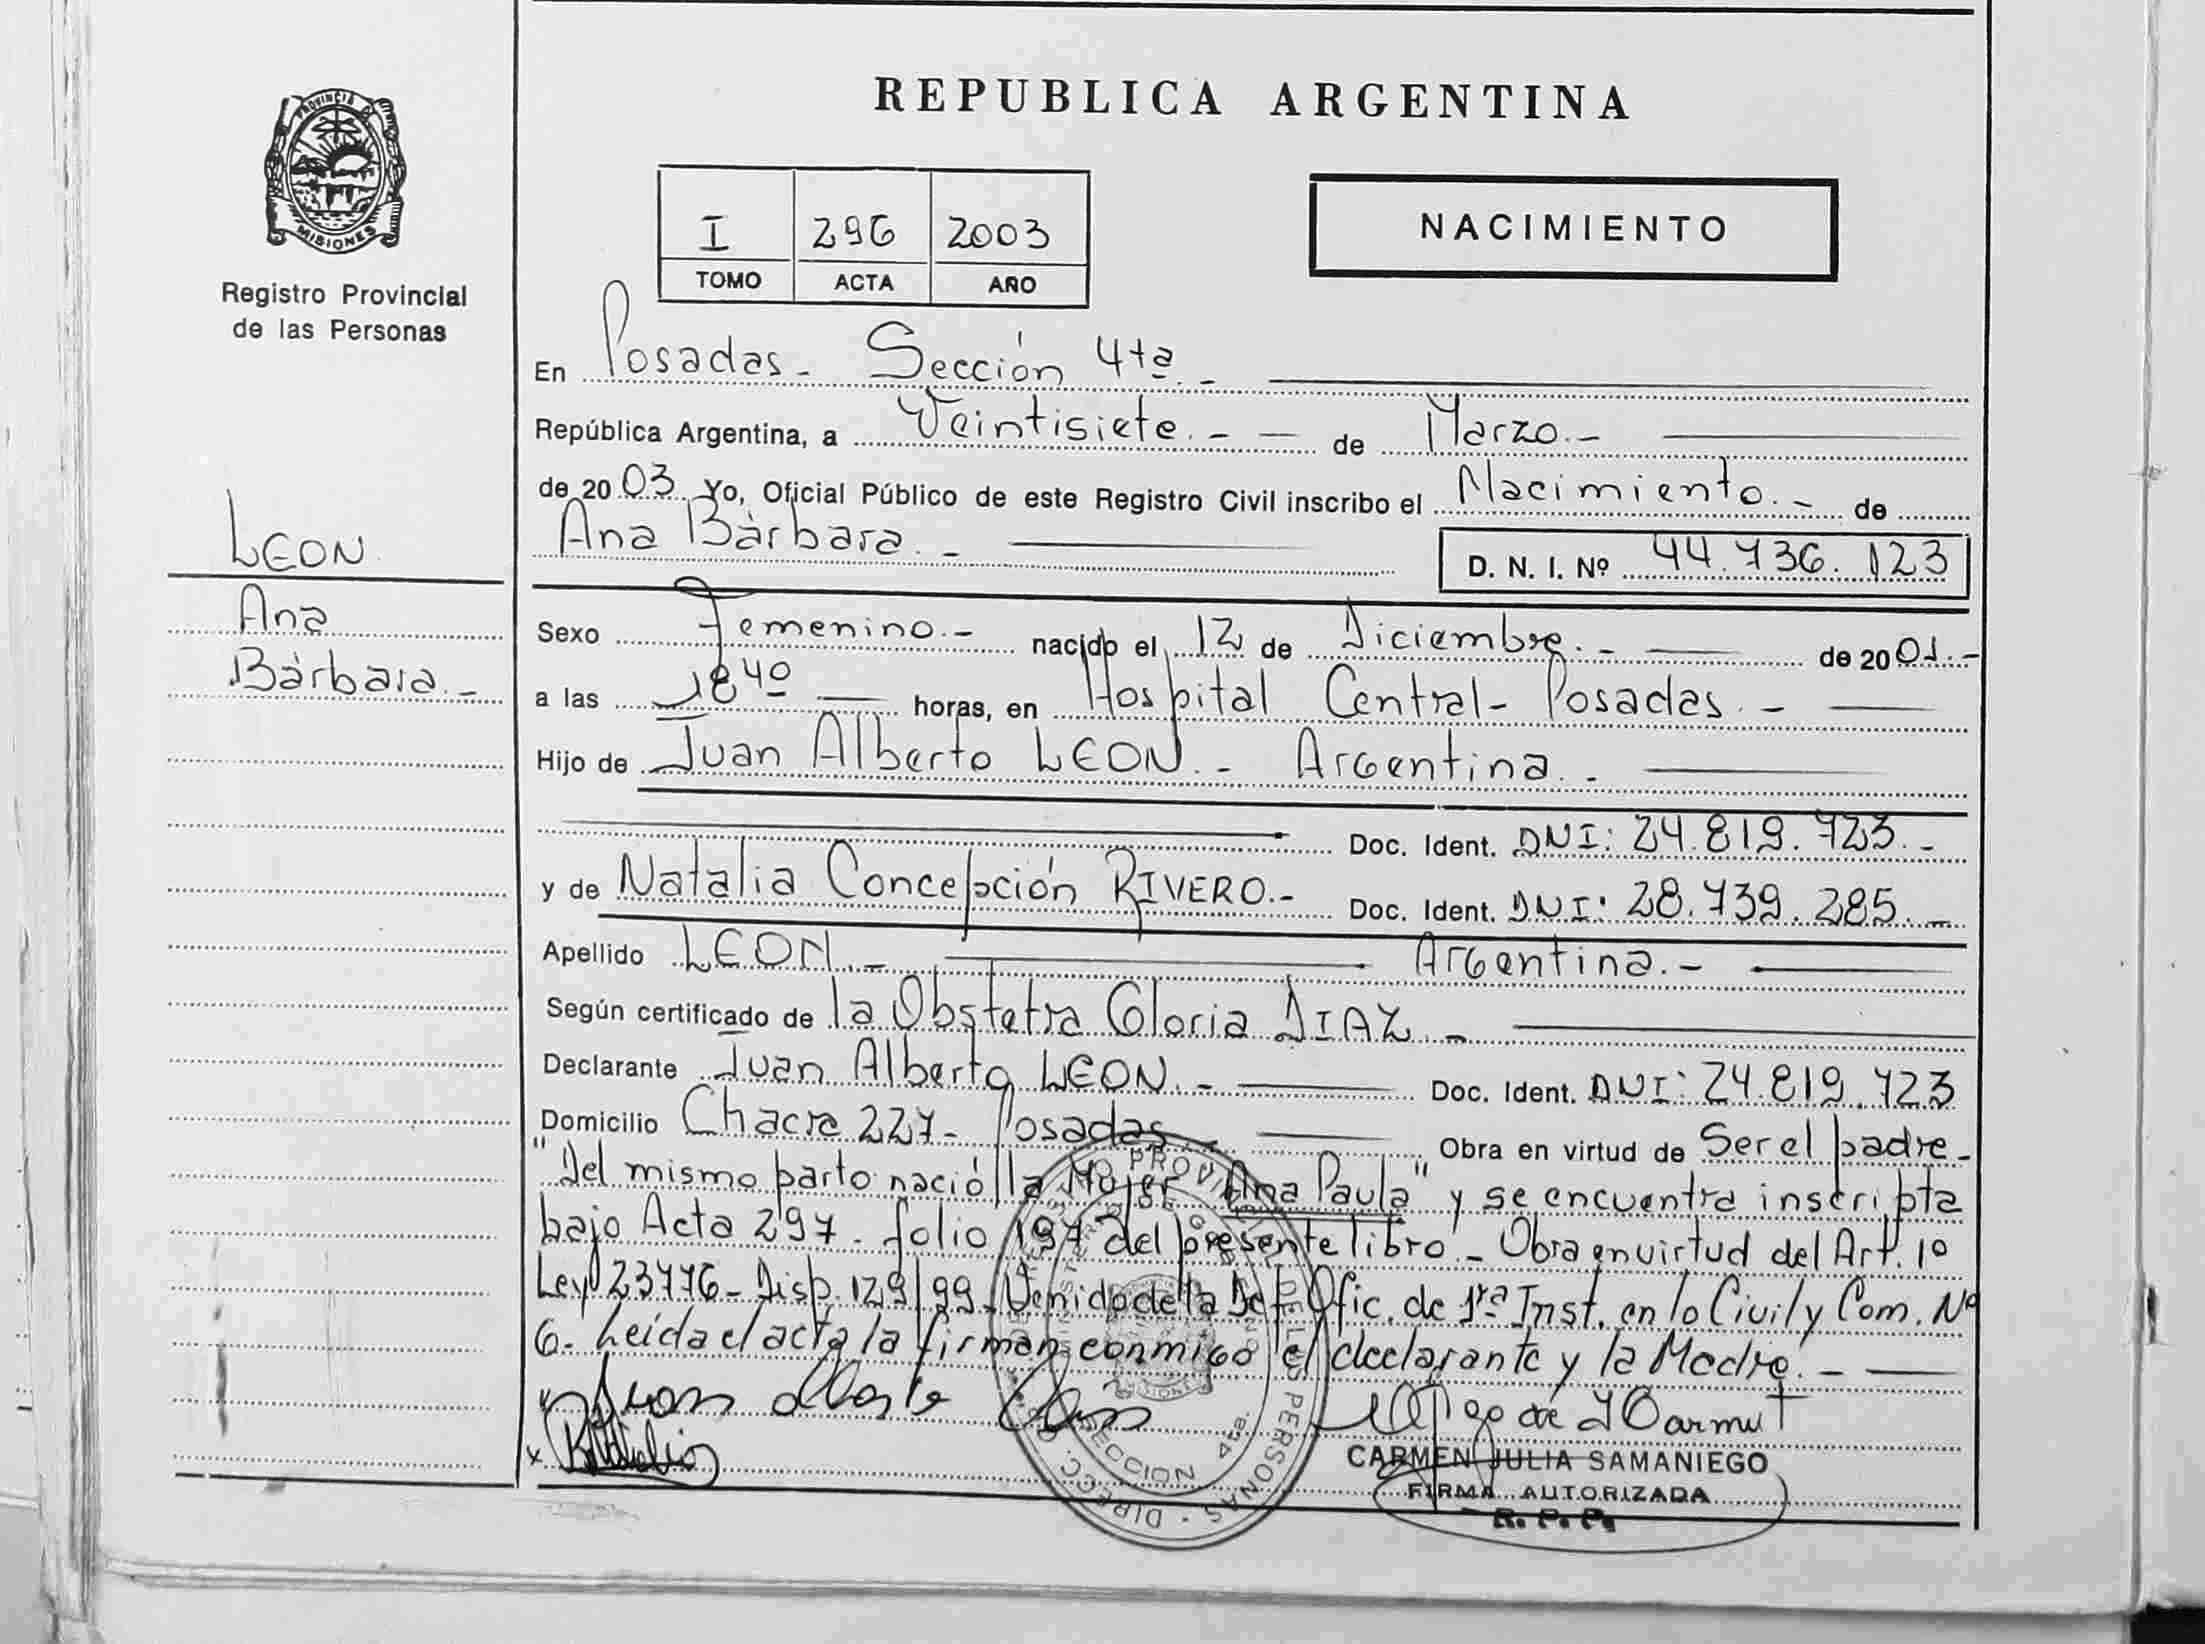 REPUBLICA ARGENTINA
PROVINCIA DE
MISIONES
Registro Provincial
de las Personas
I 296 2003
TOMO ACTA AÑO
NACIMIENTO
En Posadas - Sección 4ta. -
República Argentina, a Veintisiete. - - de Marzo. -
de 2003. Yo, Oficial Público de este Registro Civil inscribo el Nacimiento. - de
Ana Bárbara. -
D. N. I. Nº 44.736.123
LEON
Ana
Bárbara. -
Sexo Femenino. - nacido el 12 de Diciembre. - de 2001. -
a las 18 40 horas, en Hospital Central - Posadas. -
Hijo de Juan Alberto LEON. - Argentina. -
Doc. Ident. DNI: 24.819.723. -
y de Natalia Concepción RIVERO. - Doc. Ident. DNI: 28.739.285. -
Apellido LEON. - Argentina. -
Según certificado de la Obstetra Gloria DIAZ. -
Declarante Juan Alberto LEON. - Doc. Ident. DNI: 24.819.723
Domicilio Chacra 227 - Posadas. - Obra en virtud de Ser el padre -
"Del mismo parto nació la Mujer "Ana Paula" y se encuentra inscripta
bajo Acta 297 - folio 197 del presente libro - Obra en virtud del Art. 1º
Ley 23776 - Disp. 129/99. Venido de la Def. Ofic. de 1ra Inst. en lo Civil y Com. Nº
6 - Leída el acta la firman conmigo el declarante y la Madre. -
Juan Alberto León
CARMEN JULIA SAMANIEGO
FIRMA AUTORIZADA
R. P. P.
SECCION 4ta.